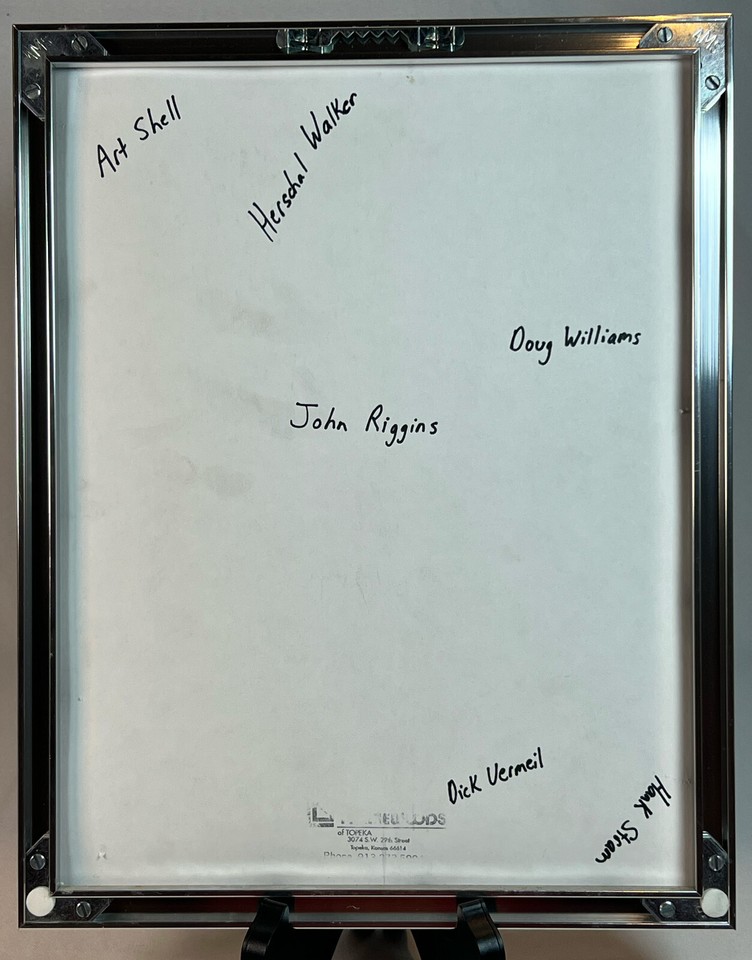 Art Shell
Herschal Walker
Doug Williams
John Riggins
Dick Vermeil
Hank Stram
of TOPEKA
3074 S.W. 29th Street
Topeka, Kansas 66614
Phone 913